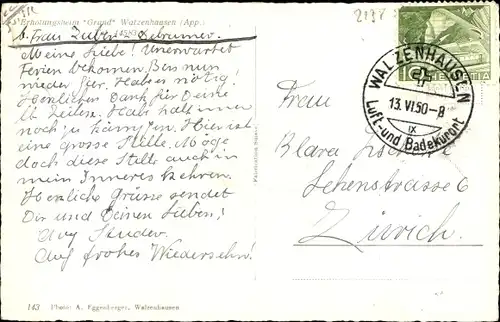 Erholungsheim "Grund" Walzenhausen (App.)
b. Frau Zuber
Meine Liebe! Unerwartet
Ferien bekommen. Bin nun
wieder hier. Habe es nötig!
Herzlichen Dank für Deine
lb. Zeilen. Habe halt immer
noch zu kämpfen. Hier ist
eine grosse Stille. Möge
doch diese Stille auch in
mein Inneres kehren.
Herzliche Grüsse sendet
Dir und Deinen Lieben!
Studer.
Auf frohes Wiedersehn!
143 Photo: A. Eggenberger, Walzenhausen
2138
HELVETIA
WALZENHAUSEN
13.VI.50-8
IX
Luft- und Badekurort
Frau
Klara
Lehenstrasse 6
Zürich.